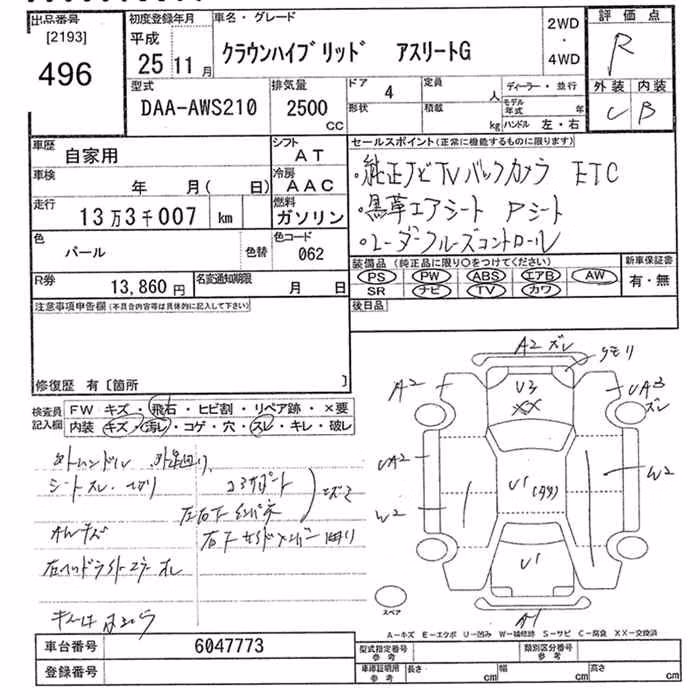 出品番号
[2193]
496
初度登録年月
平成
25 11月
車名・グレード
クラウンハイブリッド アスリートG
2WD
・
4WD
評価点
R
外装 内装
C B
型式
DAA-AWS210
排気量
2500
CC
ドア
4
定員
人
形状
積載
kg
ディーラー・並行
モデル年式
年
ハンドル 左・右
車歴
自家用
シフト
AT
車検
年 月( 日)
冷房
AAC
走行
13万3千007 km
燃料
ガソリン
色
パール
色替
色コード
062
R券
13,860円
名変通知期限
月 日
セールスポイント(正常に機能するものに限ります)
・純正ナビTVバックカメラ ETC
・黒革エアシート Pシート
・レーダークルーズコントロール
装備品(純正品に限り○をつけてください)
PS PW ABS エアB AW
SR ナビ TV カワ
新車保証書
有・無
後日品
注意事項申告欄(不具合内容等は具体的に記入して下さい)
修復歴 有〔箇所 〕
検査員
記入欄
FW キズ・飛石・ヒビ割・リペア跡・×要
内装 キズ・汚レ・コゲ・穴・スレ・キレ・破レ
シートスレ
コアサポート
A2 ズレ
クモリ
A2
U3
XX
UA3
ズレ
UA2
W2
U1
W2
U1
A1
スペア
A−キズ E−エクボ U−凹み W−補修跡 S−サビ C−腐食 XX−交換済
車台番号
6047773
登録番号
型式指定番号
参考
類別区分番号
参考
車庫証明用
参考
長さ
cm
幅
cm
高さ
cm